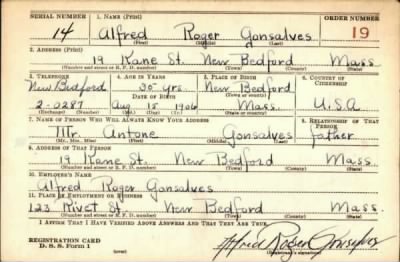 SERIAL NUMBER 1. NAME (Print) ORDER NUMBER
14 Alfred Roger Gonsalves 19
(First) (Middle) (Last)
2. ADDRESS (Print)
19 Kane St. New Bedford Mass.
(Number and street or R. F. D. number) (Town) (County) (State)
3. TELEPHONE 4. AGE IN YEARS 5. PLACE OF BIRTH 6. COUNTRY OF CITIZENSHIP
New Bedford Yrs. New Bedford
DATE OF BIRTH (Town or county)
2-0287 Aug 15 1906 Mass. U.S.A.
(Exchange) (Number) (Mo.) (Day) (Yr.) (State or country)
7. NAME OF PERSON WHO WILL ALWAYS KNOW YOUR ADDRESS 8. RELATIONSHIP OF THAT PERSON
Mr. Antone Gonsalves father
(Mr., Mrs., Miss) (First) (Middle) (Last)
9. ADDRESS OF THAT PERSON
19 Kane St. New Bedford Mass.
(Number and street or R. F. D. number) (Town) (County) (State)
10. EMPLOYER'S NAME
Alfred Roger Gonsalves
11. PLACE OF EMPLOYMENT OR BUSINESS
123 Rivet St. New Bedford Mass.
(Number and street or R. F. D. number) (Town) (County) (State)
I AFFIRM THAT I HAVE VERIFIED ABOVE ANSWERS AND THAT THEY ARE TRUE.
REGISTRATION CARD
D. S. S. Form 1
Alfred Roger Gonsalves
(Registrant's signature)